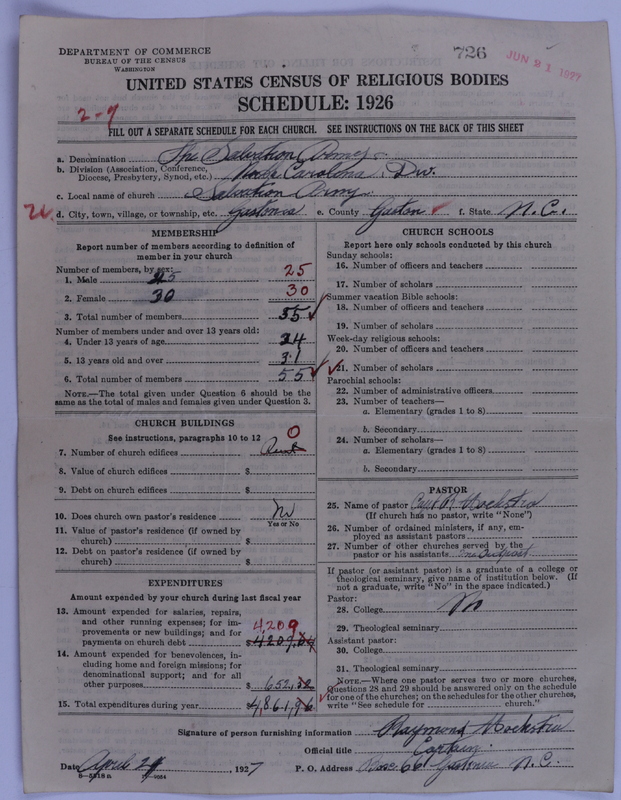 DEPARTMENT OF COMMERCE
BUREAU OF THE CENSUS
WASHINGTON
726
JUN 21 1927
UNITED STATES CENSUS OF RELIGIOUS BODIES
SCHEDULE: 1926
2-9
FILL OUT A SEPARATE SCHEDULE FOR EACH CHURCH. SEE INSTRUCTIONS ON THE BACK OF THIS SHEET
a. Denomination The Salvation Army
b. Division (Association, Conference, Diocese, Presbytery, Synod, etc.) North Carolina Div.
c. Local name of church Salvation Army
d. City, town, village, or township, etc. Gastonia e. County Gaston f. State N.C.
MEMBERSHIP
Report number of members according to definition of member in your church
Number of members, by sex:
1. Male 25 25
2. Female 30 30
3. Total number of members 55
Number of members under and over 13 years old:
4. Under 13 years of age 24
5. 13 years old and over 31
6. Total number of members 55
NOTE.—The total given under Question 6 should be the same as the total of males and females given under Question 3.
CHURCH BUILDINGS
See instructions, paragraphs 10 to 12
7. Number of church edifices Rent 0
8. Value of church edifices $
9. Debt on church edifices $
10. Does church own pastor's residence No
Yes or No
11. Value of pastor's residence (if owned by church) $
12. Debt on pastor's residence (if owned by church) $
EXPENDITURES
Amount expended by your church during last fiscal year
13. Amount expended for salaries, repairs, and other running expenses; for improvements or new buildings; and for payments on church debt 4,209 $4209.04
14. Amount expended for benevolences, including home and foreign missions; for denominational support; and for all other purposes $652.92
15. Total expenditures during year $4,861.96
CHURCH SCHOOLS
Report here only schools conducted by this church
Sunday schools:
16. Number of officers and teachers
17. Number of scholars
Summer vacation Bible schools:
18. Number of officers and teachers
19. Number of scholars
Week-day religious schools:
20. Number of officers and teachers
21. Number of scholars
Parochial schools:
22. Number of administrative officers
23. Number of teachers—
a. Elementary (grades 1 to 8)
b. Secondary
24. Number of scholars—
a. Elementary (grades 1 to 8)
b. Secondary
PASTOR
25. Name of pastor Capt R.
(If church has no pastor, write "None")
26. Number of ordained ministers, if any, employed as assistant pastors
27. Number of other churches served by the pastor or his assistants One Outpost
If pastor (or assistant pastor) is a graduate of a college or theological seminary, give name of institution below. (If not a graduate, write "No" in the space indicated.)
Pastor:
28. College No
29. Theological seminary
Assistant pastor:
30. College
31. Theological seminary
NOTE.—Where one pastor serves two or more churches, Questions 28 and 29 should be answered only on the schedule for one of the churches; on the schedules for the other churches, write "See schedule for church."
Signature of person furnishing information Raymond
Official title Captain
Date April 29, 1927 P. O. Address Box 661 Gastonia N.C.